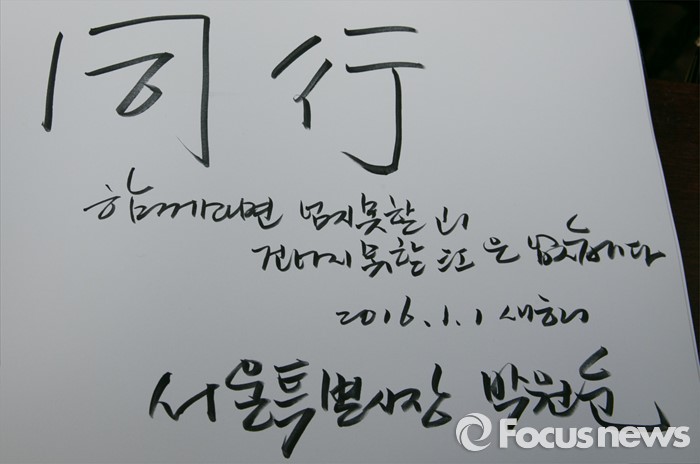 同行
함께라면 넘지못할 山
건너지 못할 江은 없습니다
2016.1.1 새해
서울특별시장 박원순
Focusnews